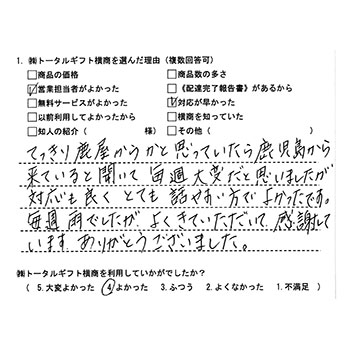 1. ㈱トータルギフト横商を選んだ理由（複数回答可）
□商品の価格 □商品数の多さ
☑営業担当者がよかった □《配達完了報告書》があるから
□無料サービスがよかった ☑対応が早かった
□以前利用してよかったから □横商を知っていた
□知人の紹介（ 様） □その他（ ）
てっきり鹿屋からかと思っていたら鹿児島から
来ていると聞いて毎週大変だと思いましたが
対応も良くとても話やすい方でよかったです。
毎週雨でしたがよくきていただいて感謝して
います ありがとうございました。
㈱トータルギフト横商を利用していかがでしたか？
（ 5. 大変よかった ④よかった 3. ふつう 2. よくなかった 1. 不満足 ）